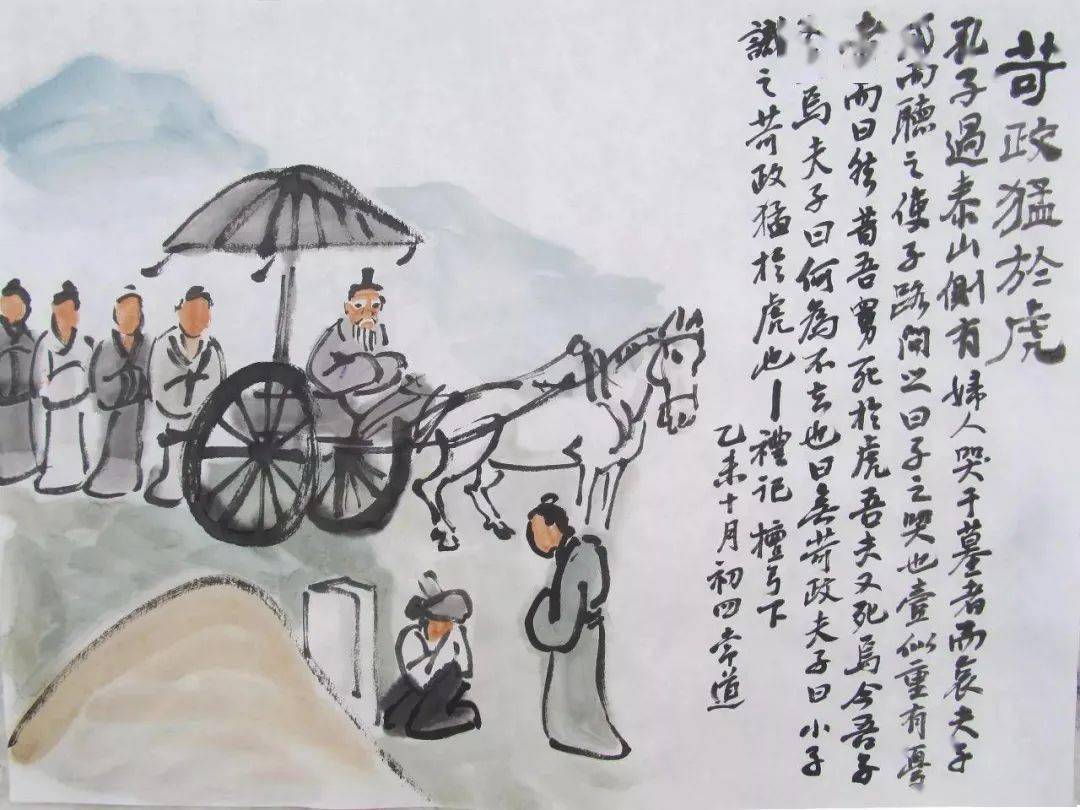 苛政猛於虎
孔子過泰山側有婦人哭于墓者而哀夫子
而聽之使子路問之曰子之哭也壹似重有憂
而曰然昔吾舅死於虎吾夫又死焉今吾子
焉夫子曰何為不去也曰無苛政夫子曰小子
識之苛政猛於虎也—禮記 檀弓下
乙未十月初四道